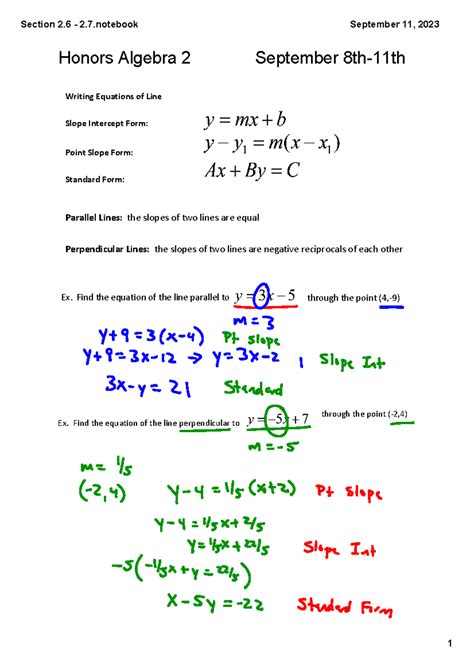 Section 2.6 - 2.7.notebook
September 11, 2023
Honors Algebra 2
September 8th-11th
Writing Equations of Line
Slope Intercept Form: y = mx + b
Point Slope Form: y − y₁ = m(x − x₁)
Standard Form: Ax + By = C
Parallel Lines: the slopes of two lines are equal
Perpendicular Lines: the slopes of two lines are negative reciprocals of each other
Ex. Find the equation of the line parallel to y = 3x − 5 through the point (4,-9)
m = 3
y+9 = 3(x-4) Pt slope
y+9 = 3x-12 → y = 3x-21 Slope Int
3x-y = 21 Standard
Ex. Find the equation of the line perpendicular to y = −5x + 7 through the point (-2,4)
m = -5
m = 1/5
(-2,4)
y-4 = 1/5(x+2) Pt slope
y-4 = 1/5x + 2/5
y = 1/5x + 22/5 Slope Int
-5(-1/5x + y = 22/5)
x-5y = -22 Standard Form
1